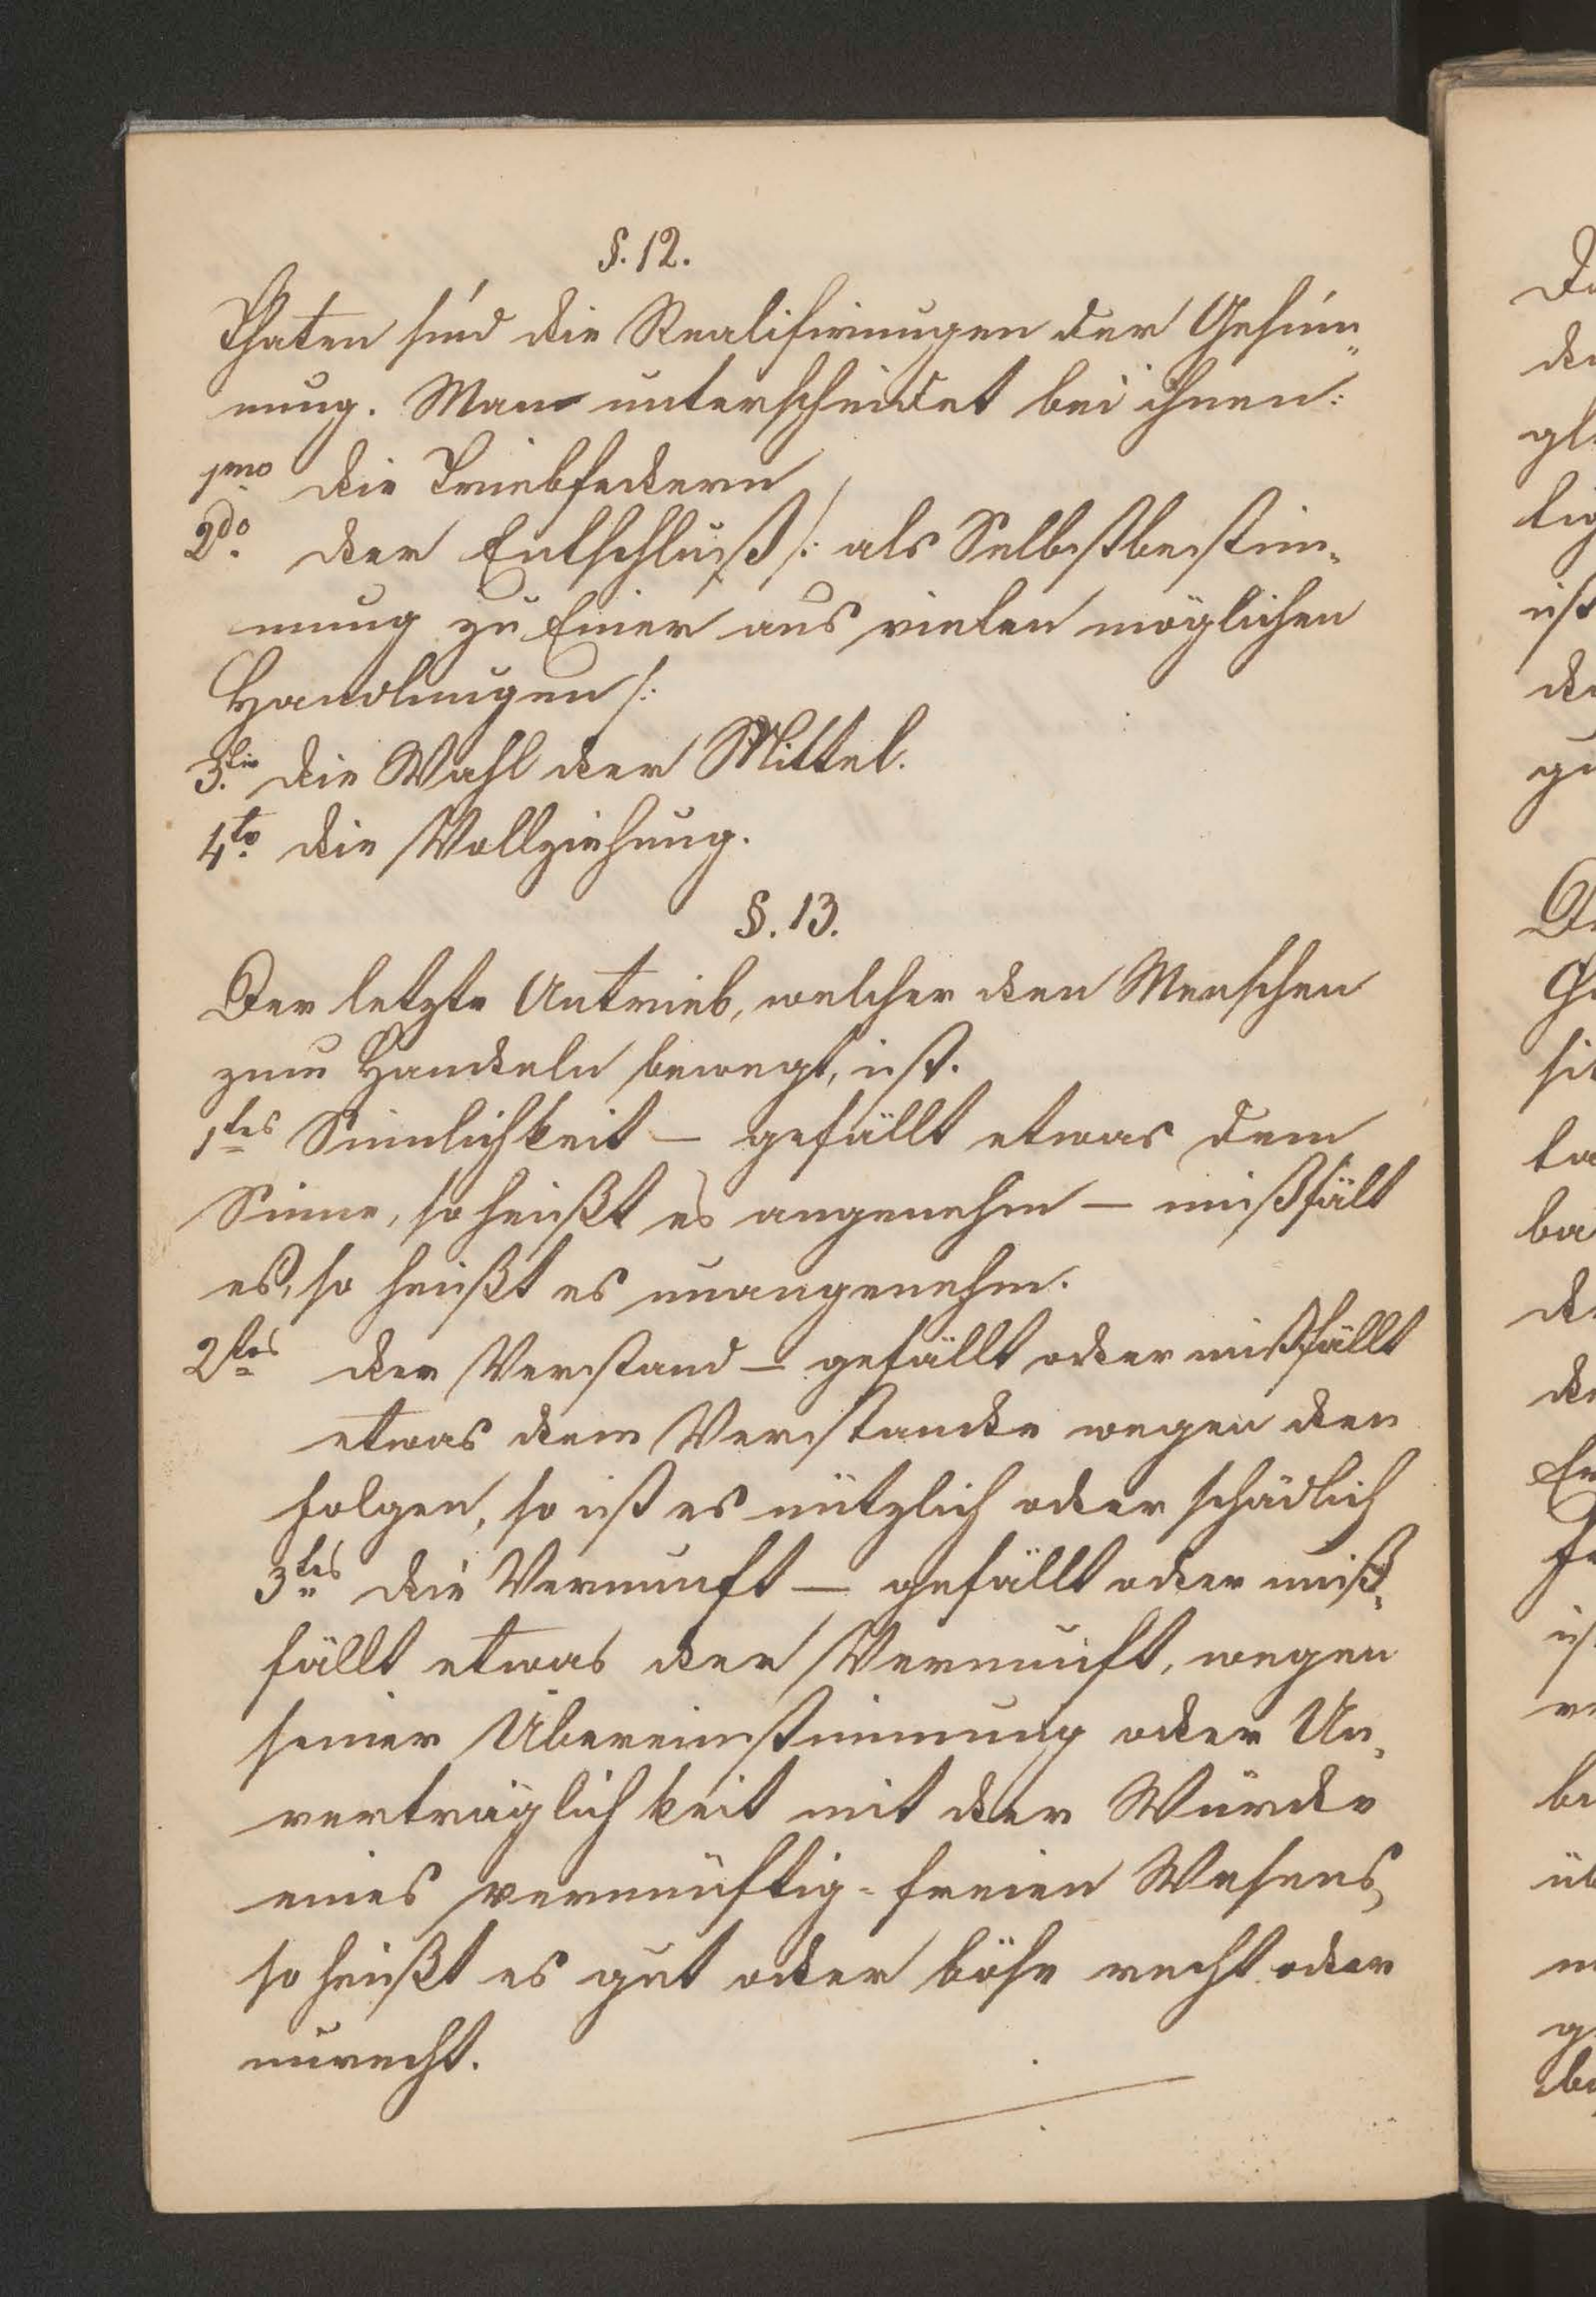 §. 12.
Thaten sind die Realisirungen der Gesin„
nung. Man unterscheidet bei ihnen:
1mo die Triebfedern
2do. der Entschluß /: als Selbstbestim„
mung zu Einer aus vielen möglichen
Handlungen /:
3.tio die Wahl der Mittel.
4to. die Vollziehung.
§. 13.
Der letzte Antrieb, welcher den Menschen
zum Handeln bewegt, ist.
1tes Sinnlichkeit — gefällt etwas dem
Sinne, so heißt es angenehm — mißfält
es, so heißt es unangenehm.
2tes der Verstand — gefällt oder mißfällt
etwas dem Verstande wegen der
Folgen, so ist es nützlich oder schädlich
3tes die Vernunft — gefällt oder miß„
fällt etwas der Vernunft, wegen
seiner Übereinstimmung oder Un„
verträglichkeit mit der Würde
eines vernünftig-freien Wesens,
so heißt es gut oder böse recht oder
unrecht.